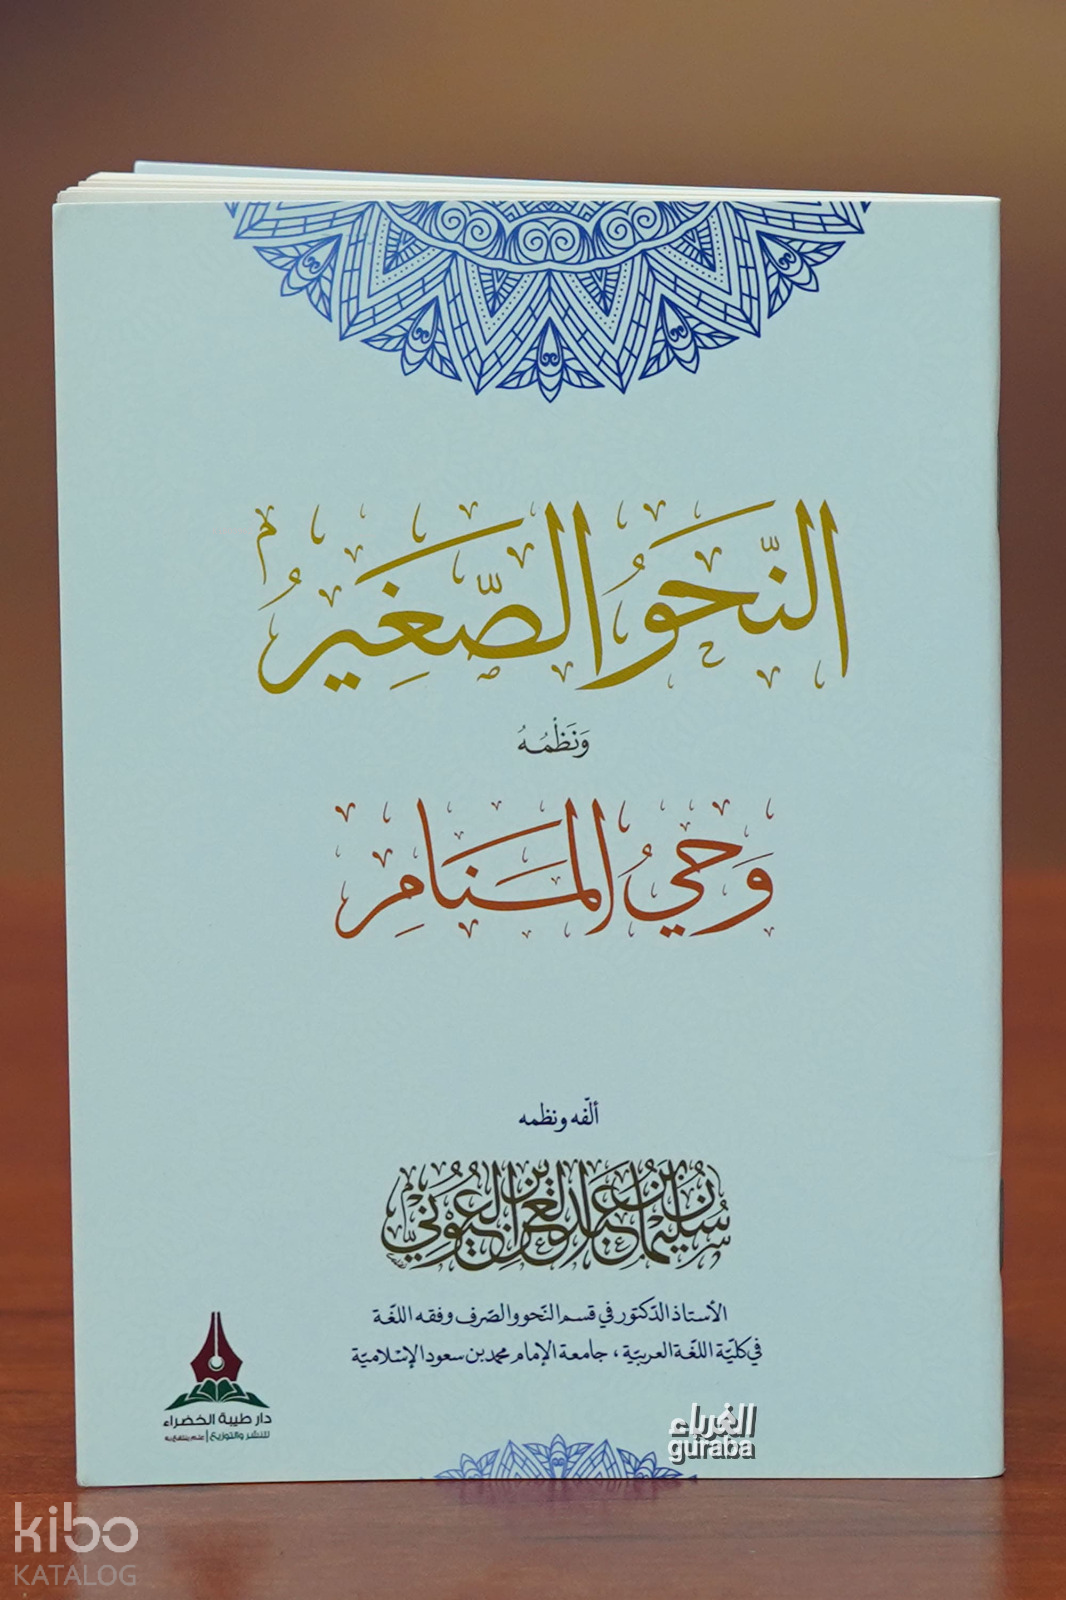 النَّحْوُ الصَّغِيرُ
وَنَظْمُهُ
وَحْيُ المَنَامِ
ألّفه ونظمه
سُلَيْمَانُ بْنُ عَبْدِ العَزِيزِ العُيُونِيُّ
الأستاذ الدّكتور في قسم النّحو والصّرف وفقه اللّغة
في كليّة اللّغة العربيّة ، جامعة الإمام محمد بن سعود الإسلاميّة
دار طيبة الخضراء
للنشر والتوزيع | علم ينتفع به
الغرباء
guraba
kibo
KATALOG